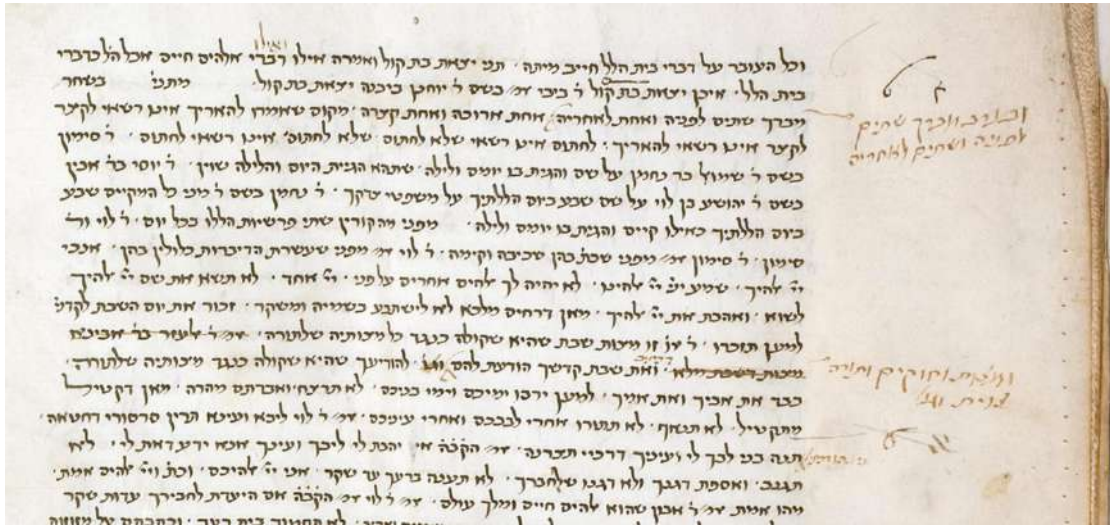 ואילו
וכל העובר על דברי בית הלל חייב מיתה · תני יצאת בת קול ואמרה אילו דברי אלהים חיים אבל הל׳ כדברי
בית הלל · איכן יצאת בת קול ר׳ ביבי אמ׳ בשם ר׳ יוחנן ביבנה יצאת בת קול · מתני׳ בשחר
מברך שתים לפניה ואחת לאחריה אחת ארוכה ואחת קצרה · מקום שאמרו להאריך אינו רשאי לקצר
לקצר אינו רשאי להאריך · לחתום אינו רשאי שלא לחתום · שלא לחתום אינו רשאי לחתום · ר׳ סימון
בשם ר׳ שמואל בר נחמן על שם והגית בו יומם ולילה · שתהא הגיית היום והלילה שוין · ר׳ יוסי בר אבין
בשם ר׳ יהושע בן לוי על שם שבע ביום הללתיך על משפטי צדקך · ר׳ נחמן בשם ר׳ מני כל המקיים שבע
ביום הללתיך כאילו קיים והגית בו יומם ולילה · מפני מה קורין שתי פרשיות הללו בכל יום · ר׳ לוי ור׳
סימון · ר׳ סימון אמ׳ מפני שכת׳ בהן שכיבה וקימה · ר׳ לוי אמ׳ מפני שעשרת הדיברות כלולין בהן · אנכי
יי׳ אלהיך · שמע יש׳ יי׳ אלהינו · לא יהיה לך אלהים אחרים על פני · יי׳ אחד · לא תשא את שם יי׳ אלהיך
לשוא · ואהבת את יי׳ אלהיך · מאן דרחים מלכא לא לישתבע בשמיה ומשקר · זכור את יום השבת לקדשו
למען תזכרו · ר׳ או׳ זו מצות שבת שהיא שקולה כנגד כל מצותיה שלתורה · אמ׳ ר׳ אלעזר בר אבינא
ואת שבת קדשך הודעת להם וגו׳ · להודיעך שהיא שקולה כנגד מצותיה שלתורה ·
כבד את אביך ואת אמך · למען ירבו ימיכם וימי בניכם · לא תרצח ואבדתם מהרה · מאן דקטיל
מתקטיל · לא תנאף · לא תתורו אחרי לבבכם ואחרי עיניכם · אמ׳ ר׳ לוי ליבא ועינא תרין סרסורי דחטאה ·
תנה בני לבך לי ועיניך דרכיי תצרנה · אמ׳ הקב״ה אי יהבת לי ליבך ועינך אנא ידע דאת לי · לא
תגנב · ואספת דגנך ולא דגנו שלחברך · לא תענה ברעך עד שקר · אני יי׳ אלהיכם · וכת׳ ויי׳ אלהים אמת ·
מהו אמת אמ׳ ר׳ אבון שהוא אלהים חיים ומלך עולם · אמ׳ ר׳ לוי אמ׳ הקב״ה אם היעדת לחבירך עדות שקר
לא תחמוד בית רעך · וכתבתם על מזוזות
ובערב מברך שתים
לפניה ושתים לאחריה
ומצות וחוקים ותורה
צוית וגו׳